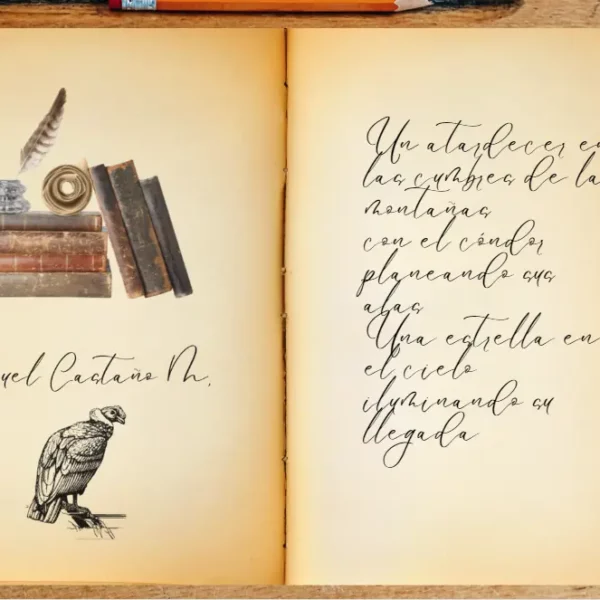 uel Castaño M.
Un atardecer en
las cumbres de la
montañas
con el cóndor
planeando sus
alas
Una estrella en
el cielo
iluminando su
llegada